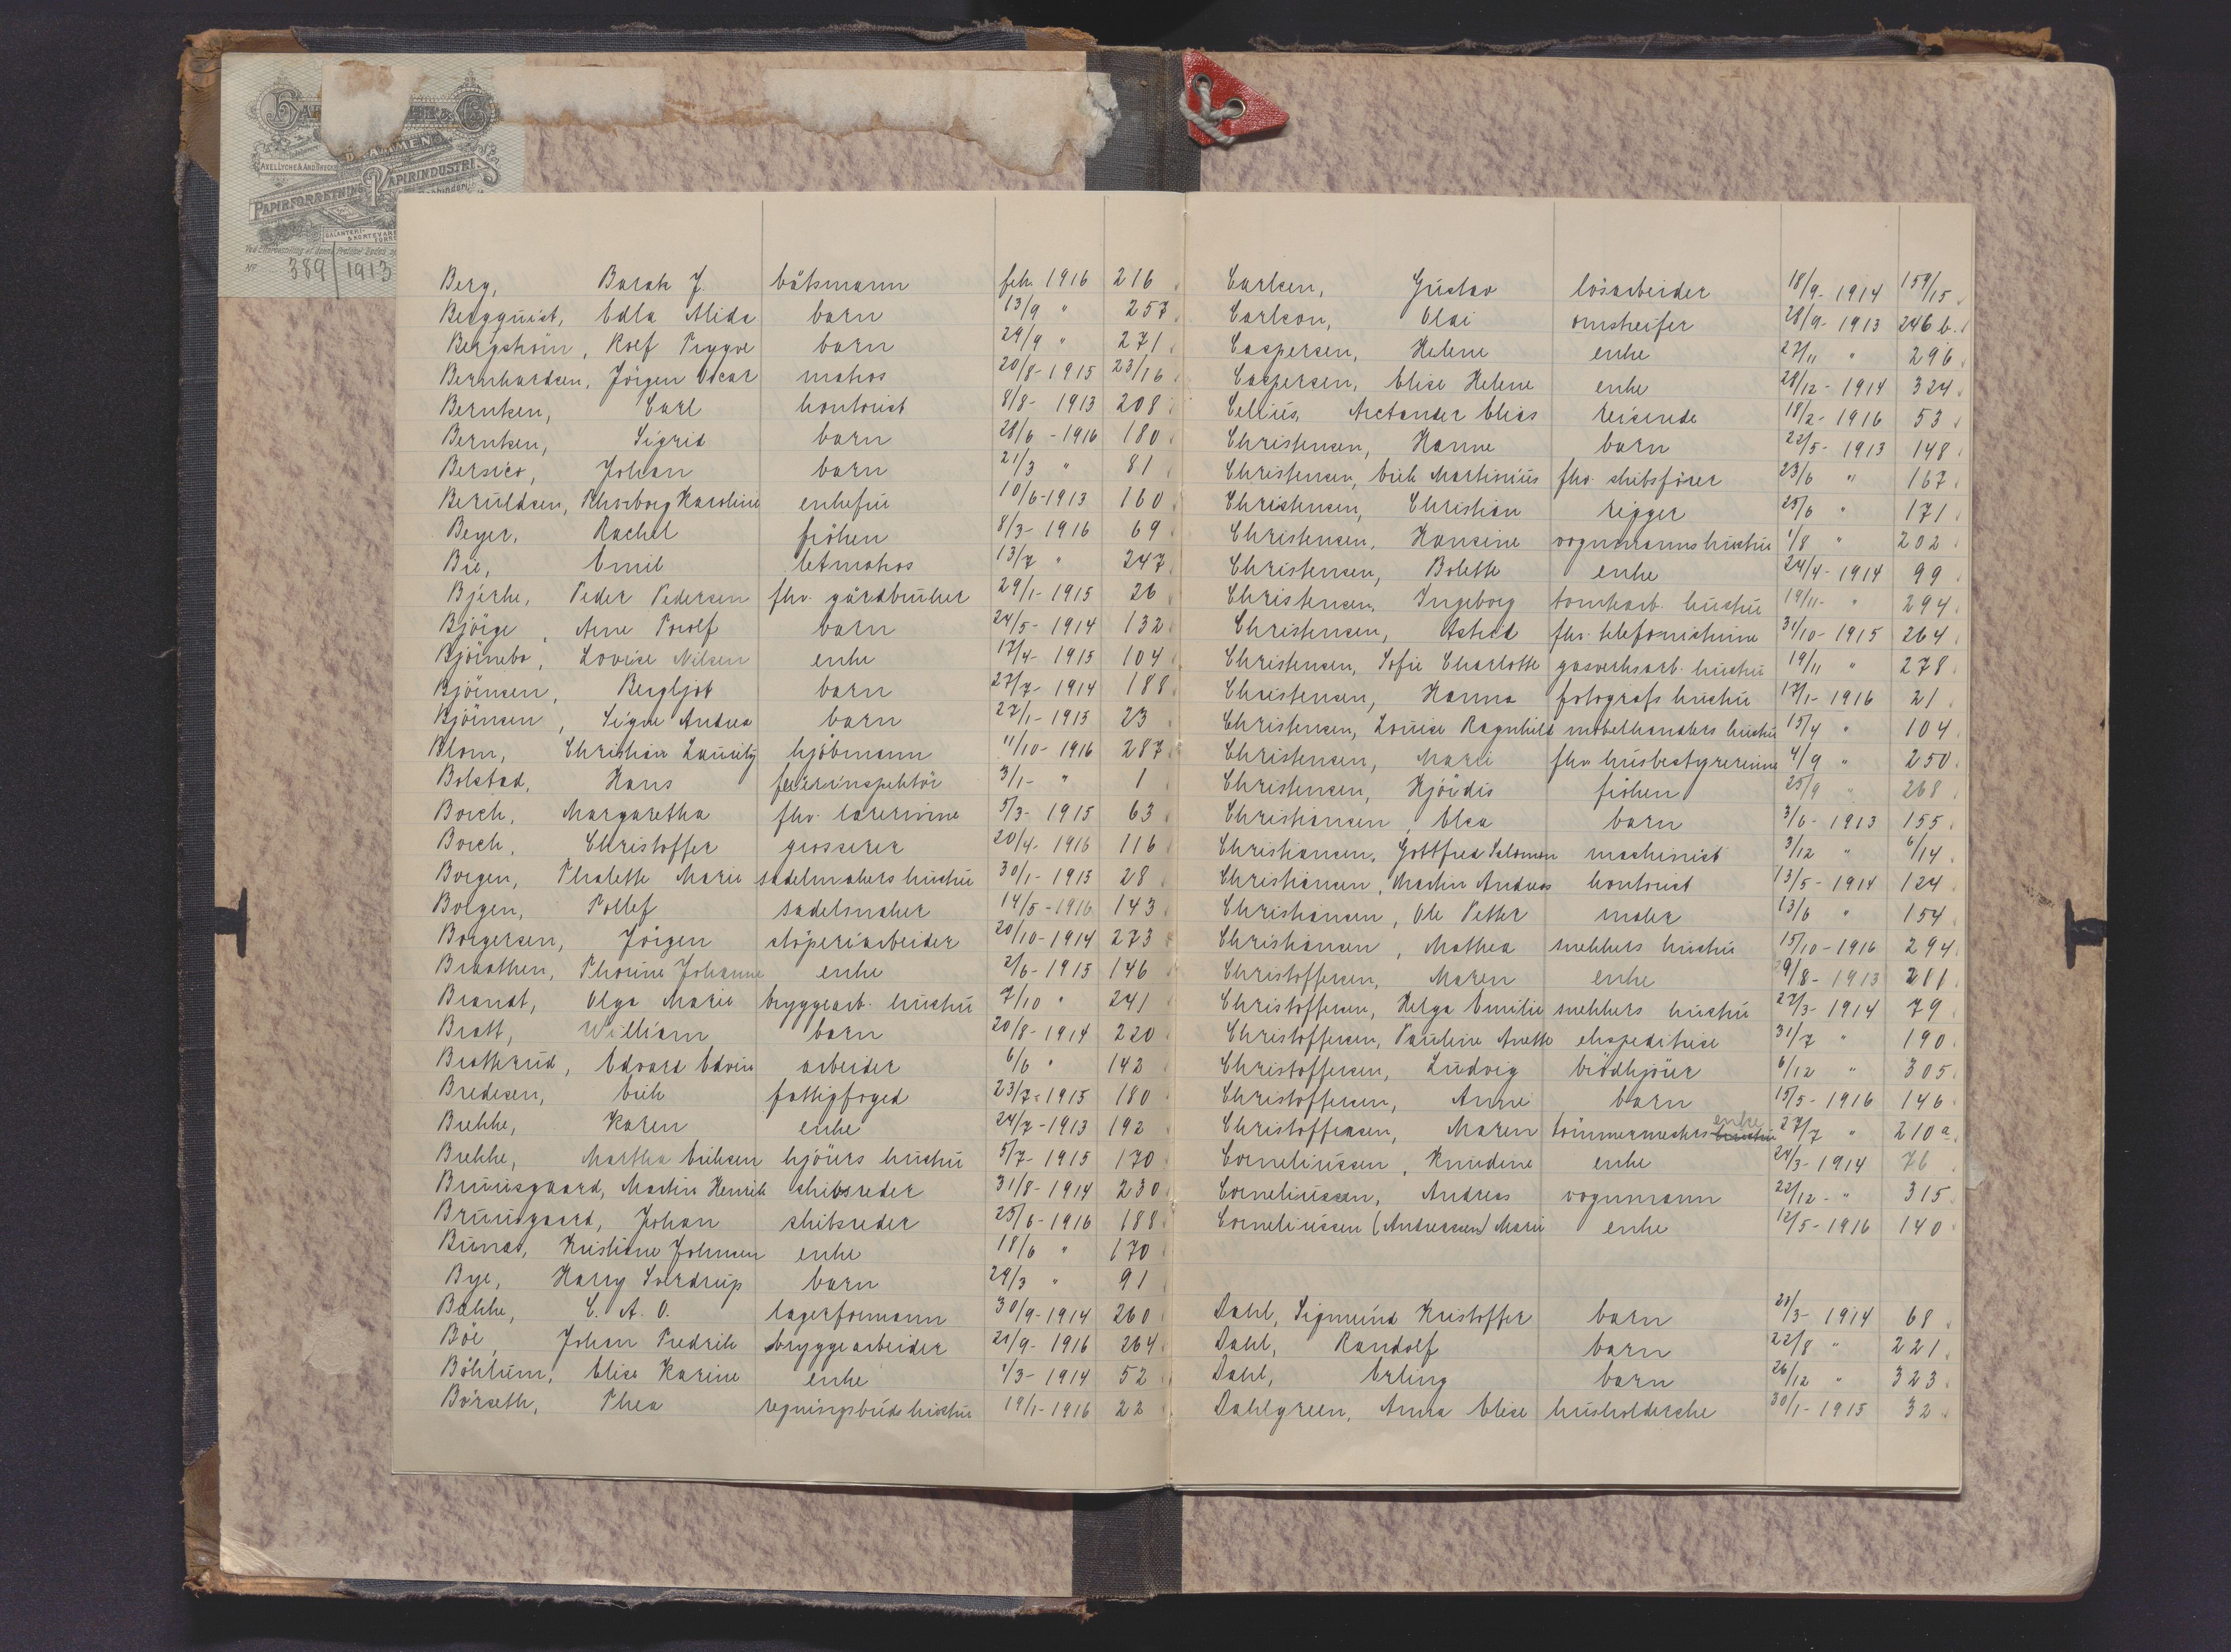 DRAMMEN
AXEL LYCHE &
PAPIRFORRETNING PAPIRINDUSTRI
GALANTERI-
& KORTEVARE
No 389/1913
Berg, Barak J. båtsmann feb. 1916 216
Bergquist, Edla Alida barn 13/9 " 257
Bergström, Rolf Trygve barn 29/9 " 271
Bernhardsen, Jörgen Oscar matros 20/8-1915 23/16
Berntsen, Carl kontorist 8/8- 1913 208
Berntsen, Sigrid barn 28/6 -1916 180
Bersico, Johan barn 21/3 " 81
Beruldsen, Thorborg Karoline enkefru 10/6-1913 160
Beyer, Rachel fröken 8/3- 1916 69
Bie, Emil letmatros 13/7 " 247
Bjerke, Peder Pedersen fhv. gårdbruker 29/1- 1915 26
Björge, Arne Torolf barn 24/5- 1914 132
Björnebo, Lovise Nilsen enke 17/4- 1915 104
Björnsen, Bergljot barn 27/7- 1914 188
Björnsen, Signe Andrea barn 27/1- 1915 23
Blom, Christian Lauritz kjöbmann 11/10- 1916 287
Bolstad, Hans feierinspektör 3/1- " 1
Borch, Margaretha fhv. lærerinne 5/3- 1915 63
Borch, Christoffer grosserer 20/4- 1916 116
Borgen, Thalette Marie sadelmakers hustru 30/1- 1915 28
Borgen, Tollef sadelmaker 14/5 -1916 143
Borgersen, Jörgen stöperiarbeider 20/10-1914 273
Braathen, Thorine Johanne enke 2/6- 1915 146
Brandt, Olga Marie bryggearb. hustru 7/10 " 241
Bratt, William barn 20/8- 1914 220
Bratterud, Edvard Edvin arbeider 6/6 " 142
Bredesen, Erik fattigfoged 23/7- 1915 180
Brekke, Karen enke 24/7 -1913 192
Brekke, Martha Eriksen kjörers hustru 5/7- 1915 170
Bruusgaard, Martin Henrik skibsreder 31/8- 1914 230
Bruusgaard, Johan skibsreder 25/6-1916 188
Bunas, Kristiane Johnsen enke 18/6 " 170
Bye, Harry Sverdrup barn 29/3 " 91
Bække, C. A. O. lagerformann 30/9-1914 260
Böe, Johan Fredrik bryggearbeider 21/9- 1916 264
Böhlum, Elise Karine enke 1/3- 1914 52
Börseth, Thea regningsbuds hustru 19/1-1916 22
Carlsen, Gustav lösarbeider 18/9- 1914 159/15
Carlson, Olai omstreifer 28/9- 1913 246 b.
Caspersen, Helene enke 27/11 " 296
Caspersen, Elise Helene enke 28/12- 1914 324
Cellius, Arctander Elias reisende 18/2- 1916 53
Christensen, Hanne barn 22/5- 1913 148
Christensen, Erik Martinius fhv. skibsförer 23/6 " 167
Christensen, Christian rigger 25/6 " 171
Christensen, Hansine vognmanns hustru 1/8 " 202
Christensen, Bolette enke 24/4- 1914 99
Christensen, Ingeborg tomtearb. hustru 19/11- " 294
Christensen, Astrid fhv. telefonistinne 31/10- 1915 264
Christensen, Sofie Charlotte gasverksarb. hustru 19/11 " 278
Christensen, Hanna fotografs hustru 17/1- 1916 21
Christensen, Louise Ragnhild möbelhandlers hustru 15/4 " 104
Christensen, Marie fhv. husbestyrerinne 4/9 " 250
Christensen, Hjördis fröken 25/9 " 268
Christiansen, Elsa barn 3/6- 1913 155
Christiansen, Gottfred Salomon maskinist 3/12 " 6/14
Christiansen, Martin Andreas kontorist 13/5- 1914 124
Christiansen, Ole Petter maler 13/6 " 154
Christiansen, Mathea snekkers hustru 15/10-1916 294
Christoffersen, Maren enke 29/8- 1913 281
Christoffersen, Helga Emilie snekkers hustru 27/3- 1914 79
Christoffersen, Pauline Anette ekspeditrise 31/7 " 190
Christoffersen, Ludvig brödkjörer 6/12 " 305
Christoffersen, Anne barn 15/5- 1916 146
Christoffersen, Maren tömmermesters hustru enke 27/7 " 210 a
Corneliussen, Knudine enke 24/3- 1914 76
Corneliussen, Andreas vognmann 22/12- " 315
Corneliussen (Andreassen) Marie enke 12/5- 1916 140
Dahl, Sigmund Kristoffer barn 20/3- 1914 68
Dahl, Randolf barn 22/8 " 221
Dahl, Erling barn 26/12 " 323
Dahlgreen, Anna Elise husholderske 30/1- 1915 32